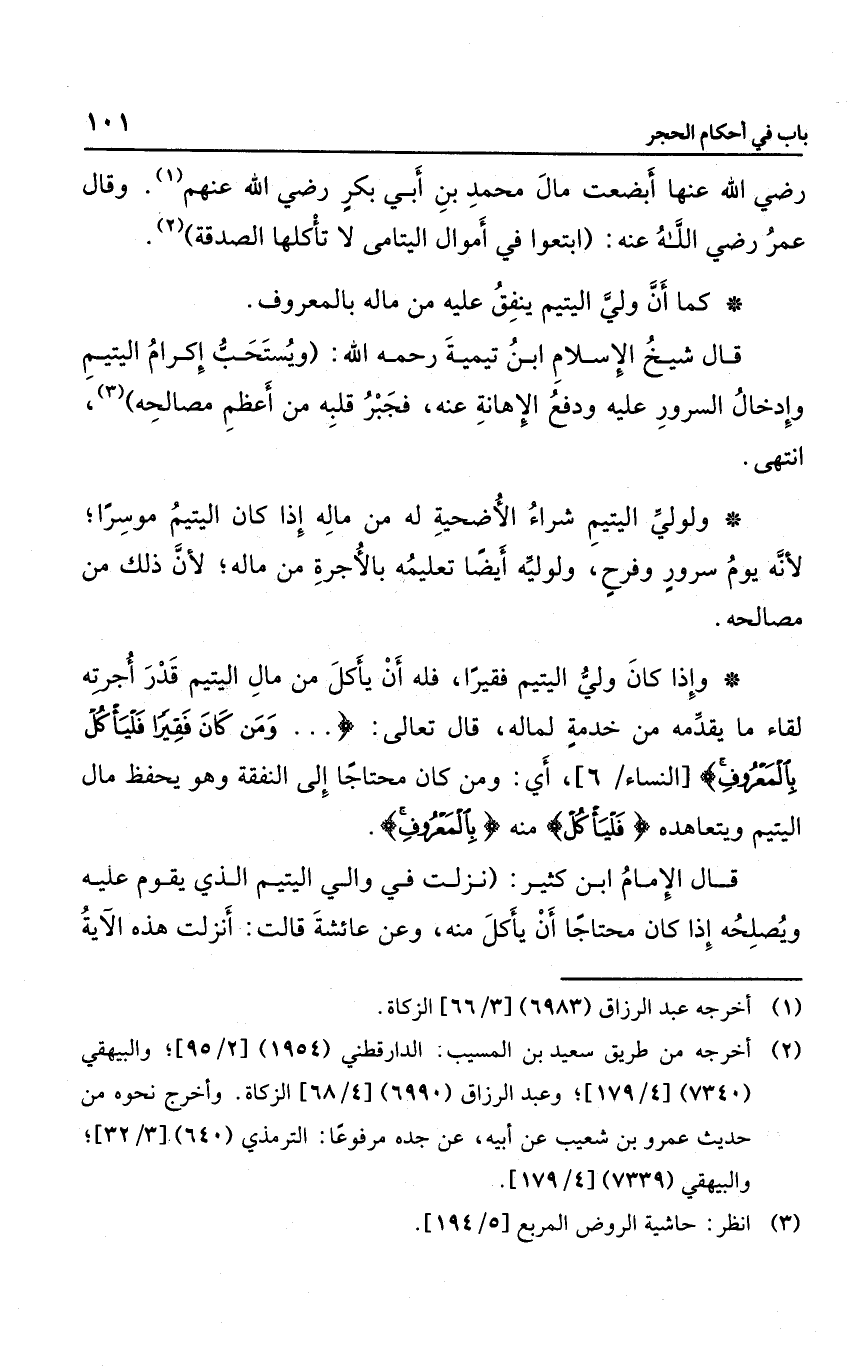 باب في أحكام الحجر
١٠١
رضي الله عنها أَبضعت مالَ محمدِ بنِ أَبي بكرٍ رضي الله عنهم(١). وقال
عمرُ رضي اللَّهُ عنه: (ابتعوا في أَموال اليتامى لا تأْكلها الصدقة)(٢).
* كما أَنَّ وليَّ اليتيم ينفِقُ عليه من ماله بالمعروف.
قال شيخُ الإِسلامِ ابنُ تيميةَ رحمه الله: (ويُستَحَبُّ إِكرامُ اليتيمِ
وإِدخالُ السرورِ عليه ودفعُ الإِهانةِ عنه، فجَبْرُ قلبِه من أَعظمِ مصالحِه)(٣)،
انتهى.
* ولوليِّ اليتيمِ شراءُ الأُضحيةِ له من مالِه إِذا كان اليتيمُ موسِرًا؛
لأنَّه يومُ سرورٍ وفرحٍ، ولوليِّه أَيضًا تعليمُه بالأُجرةِ من ماله؛ لأنَّ ذلك من
مصالحه.
* وإِذا كانَ وليُّ اليتيم فقيرًا، فله أَنْ يأكلَ من مالِ اليتيم قَدْرَ أُجرتِه
لقاء ما يقدِّمه من خدمةٍ لماله، قال تعالى: ﴿... وَمَن كَانَ فَقِيرًا فَلْيَأْكُلْ
بِٱلْمَعْرُوفِۚ﴾ [النساء/ ٦]، أَي: ومن كان محتاجًا إِلى النفقة وهو يحفظ مال
اليتيم ويتعاهده ﴿ فَلْيَأْكُلْ﴾ منه ﴿ بِٱلْمَعْرُوفِۚ﴾.
قال الإِمامُ ابن كثير: (نزلت في والي اليتيم الذي يقوم عليه
ويُصلِحُه إِذا كان محتاجًا أَنْ يأكلَ منه، وعن عائشةَ قالت: أَنزلت هذه الآيةُ
(١) أخرجه عبد الرزاق (٦٩٨٣) [٦٦/٣] الزكاة.
(٢) أخرجه من طريق سعيد بن المسيب: الدارقطني (١٩٥٤) [٩٥/٢]؛ والبيهقي
(٧٣٤٠) [١٧٩/٤]؛ وعبد الرزاق (٦٩٩٠) [٦٨/٤] الزكاة. وأخرج نحوه من
حديث عمرو بن شعيب عن أبيه، عن جده مرفوعًا: الترمذي (٦٤٠) [٣٢/٣]؛
والبيهقي (٧٣٣٩) [١٧٩/٤].
(٣) انظر: حاشية الروض المربع [١٩٤/٥].